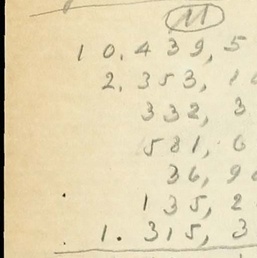 M
10.439,5
2.353,1
332,3
581,6
36,9
135,2
1.315,3